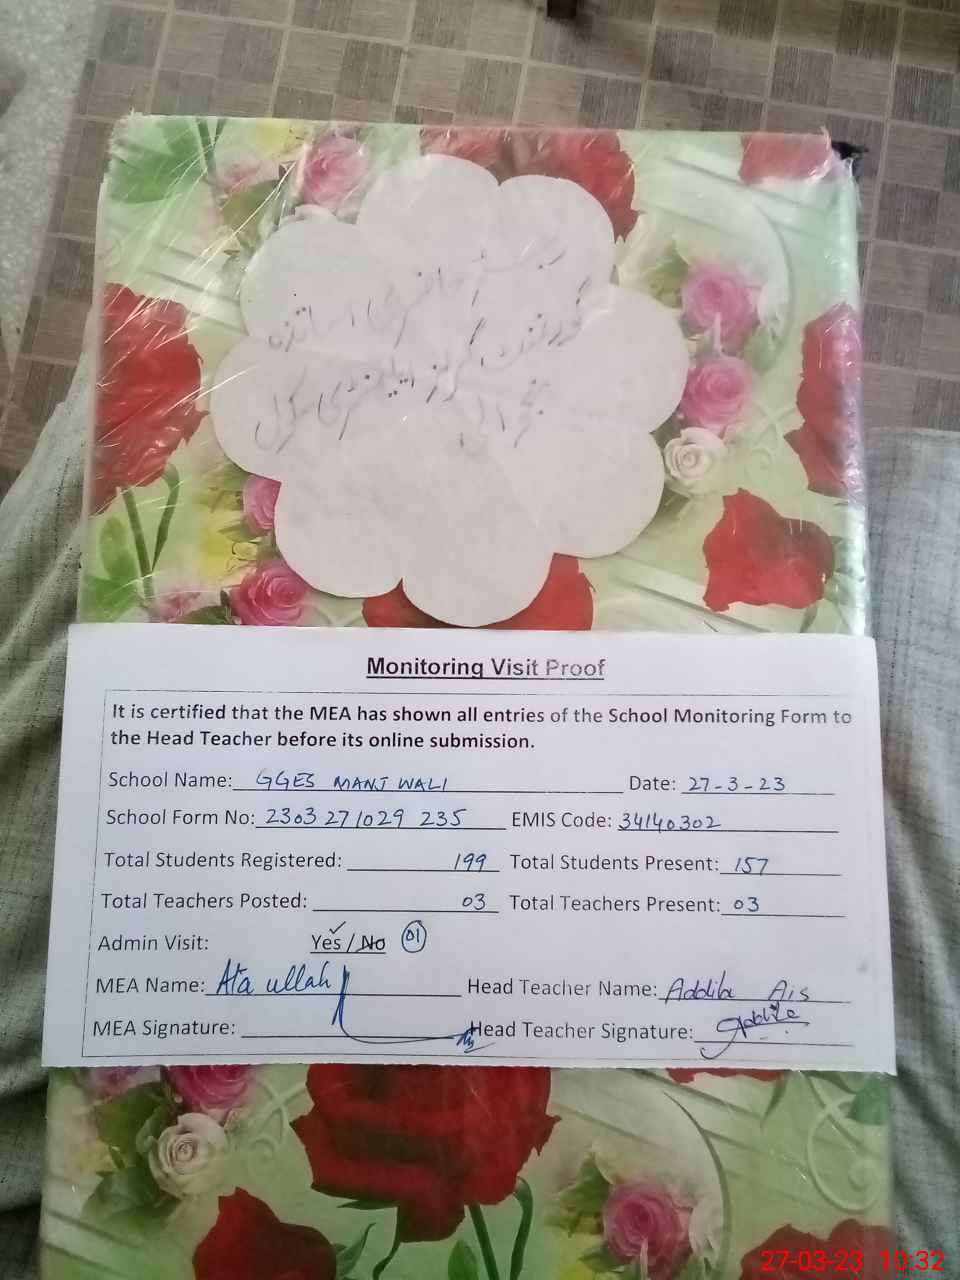 رجسٹر حاضری اساتذہ
گورنمنٹ گرلز ایلیمنٹری سکول
Monitoring Visit Proof
It is certified that the MEA has shown all entries of the School Monitoring Form to
the Head Teacher before its online submission.
School Name: GGES MANJ WALI Date: 27-3-23
School Form No: 2303 271029 235 EMIS Code: 34140302
Total Students Registered: 199 Total Students Present: 157
Total Teachers Posted: 03 Total Teachers Present: 03
Admin Visit: Yes / No 01
MEA Name: Ata ullah Head Teacher Name: Addila Ais
MEA Signature: Head Teacher Signature:
27-03-23 10:32